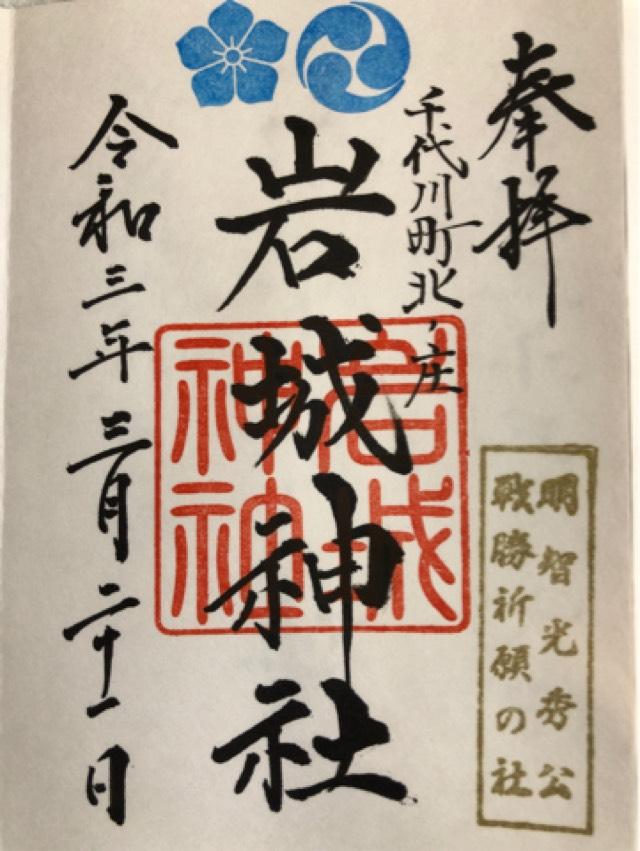 奉拝
千代川町北ノ庄
岩城神社
令和三年三月二十一日
明智光秀公
戦勝祈願の社
岩城
神社